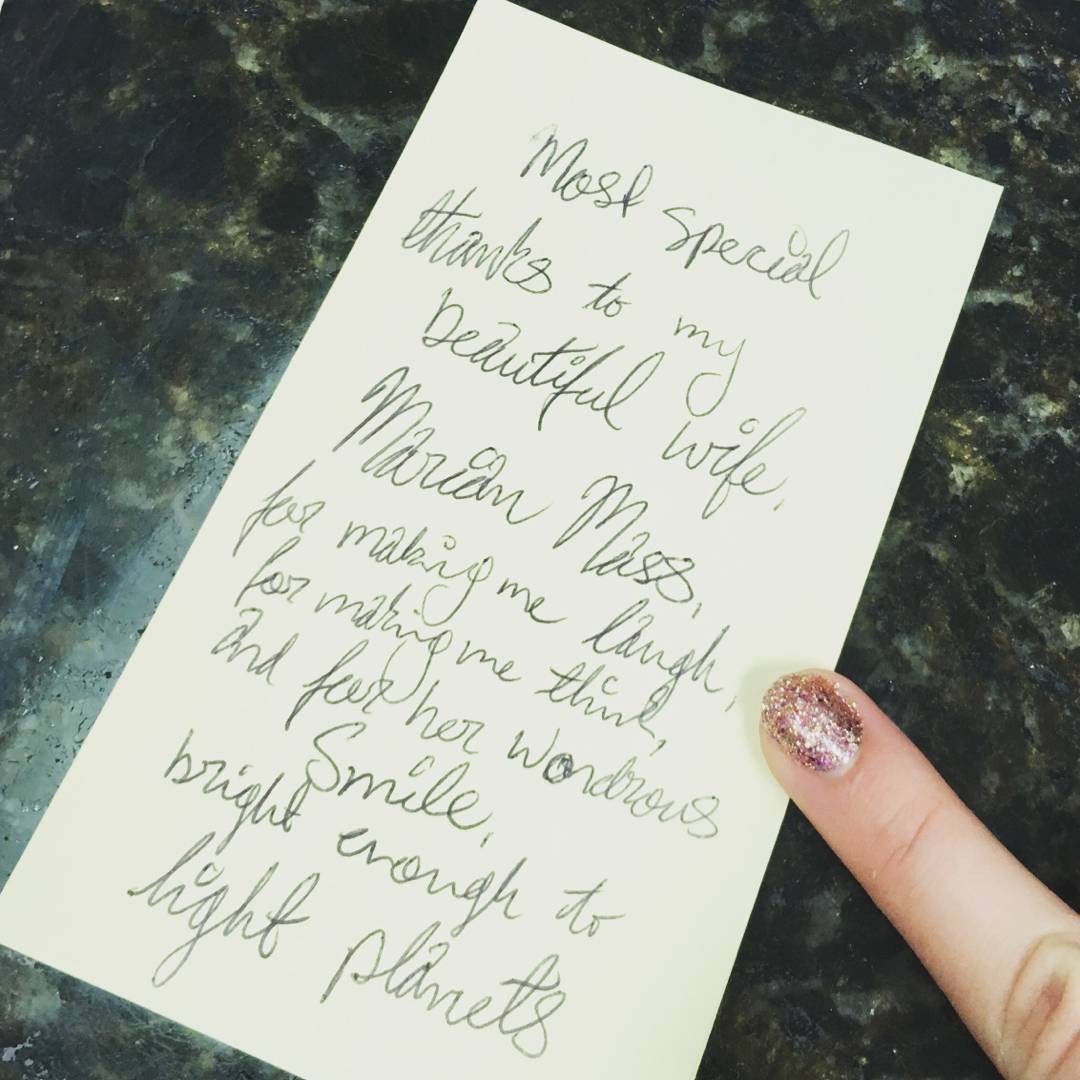 Most special
thanks to my
beautiful wife,
Marian Mass,
for making me laugh,
for making me think,
and for her wondrous
smile,
bright enough to
light planets